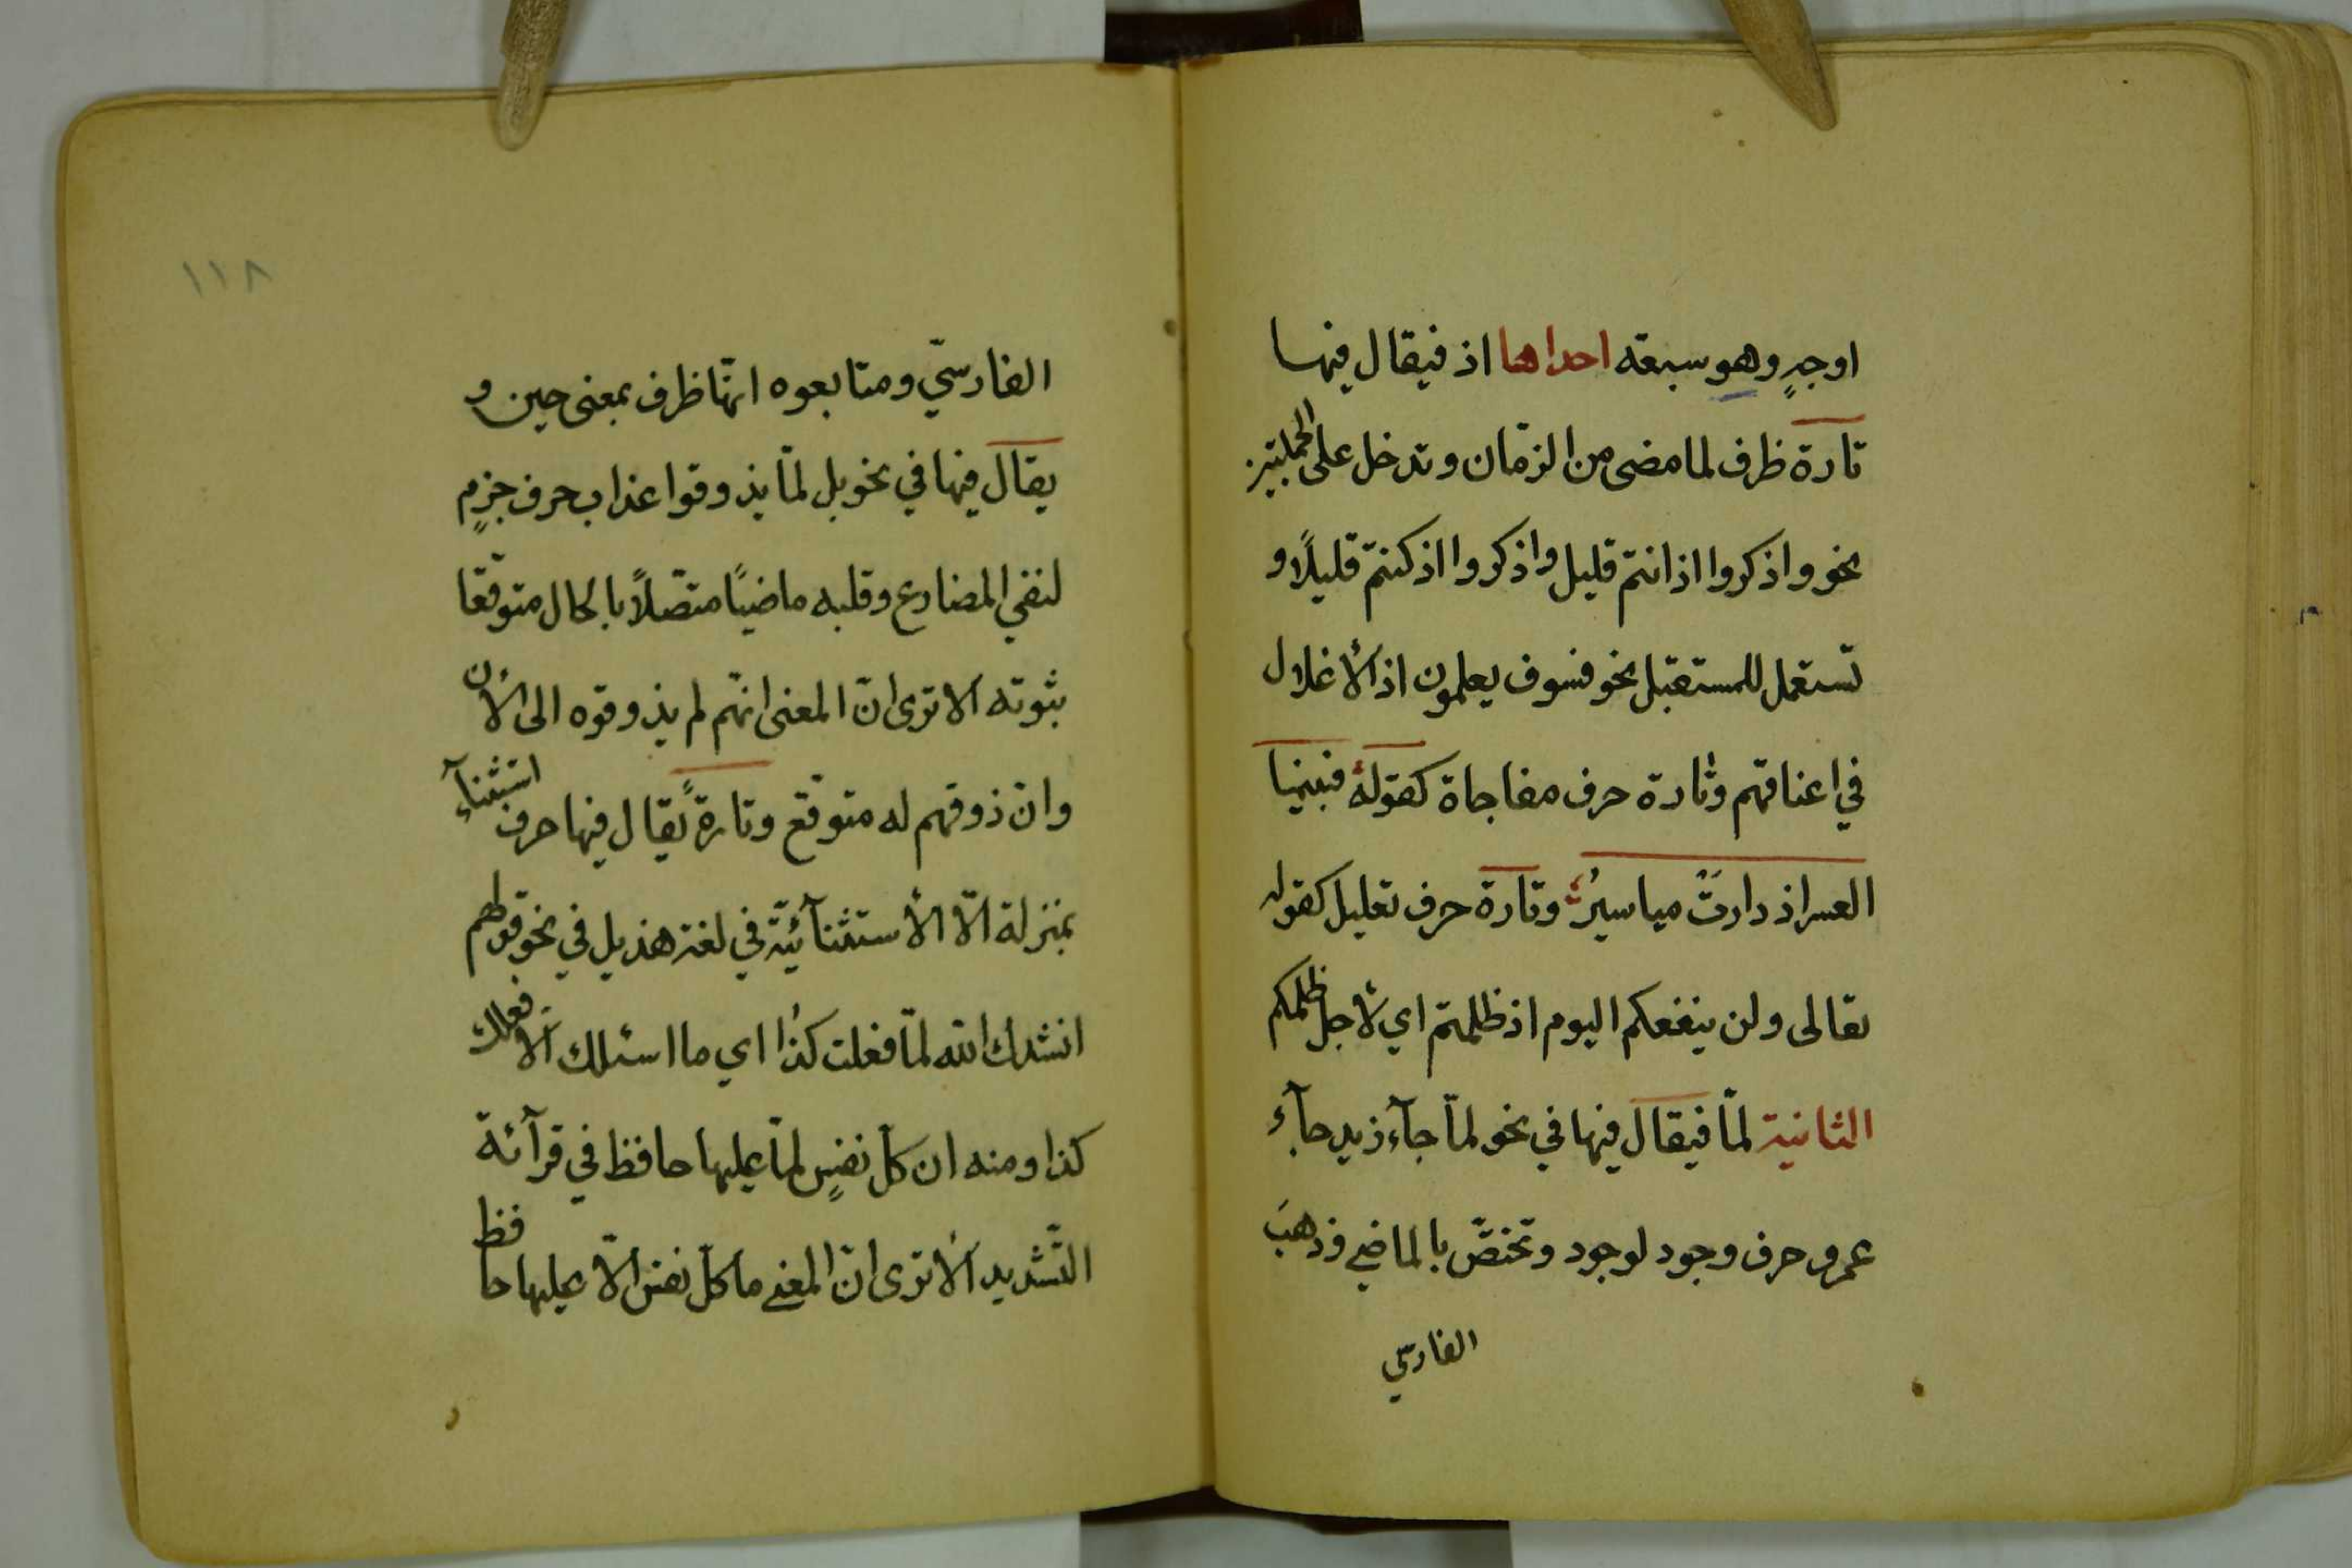 اوجهٍ وهو سبعة احداها اذ فيقال فيها
تارة ظرف لما مضى من الزّمان وتدخل على الجملتين
نحو واذكروا اذ انتم قليل واذكروا اذ كنتم قليلًا و
تستعمل للمستقبل نحو فسوف يعلمون اذ الأغلال
في اعناقهم وتارة حرف مفاجاة كقوله فبينما
العسر اذ دارت مياسير وتارة حرف تعليل كقوله
تعالى ولن ينفعكم اليوم اذ ظلمتم اي لأجل ظلمكم
الثانية لمّا فيقال فيها في نحو لمّا جآء زيد جآء
عمرو حرف وجود لوجود وتختصّ بالماضي وذهب
الفارسي
١١٨
الفارسيّ ومتابعوه انّها ظرف بمعنى حين و
يقال فيها في نحو بل لمّا يذوقوا عذاب حرف جزمٍ
لنفي المضارع وقلبه ماضيًا متّصلًا بالحال متوقّعا
ثبوته الا ترى انّ المعنى انّهم لم يذوقوه الى الأن
وانّ ذوقهم له متوقّع وتارةً يقال فيها حرف استثنآء
بمنزلة الّا الأستثنآئيّة في لغة هذيل في نحو قولهم
انشدك الله لمّا فعلت كذا اي ما اسئلك الّا فعلك
كذا ومنه ان كلّ نفسٍ لمّا عليها حافظ في قرآئة
التّشديد الا ترى انّ المعنى ما كلّ نفس الّا عليها حافظ